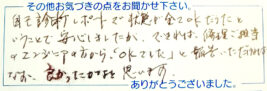 その他お気づきの点をお聞かせ下さい。
診断レポートで状態が全てOKだったと
いうことで安心しましたが、できれば、修理ご担当
のエンジニアの方から、「OKでした」と報告いただければ
なお、良かったかなと思います
ありがとうございました。